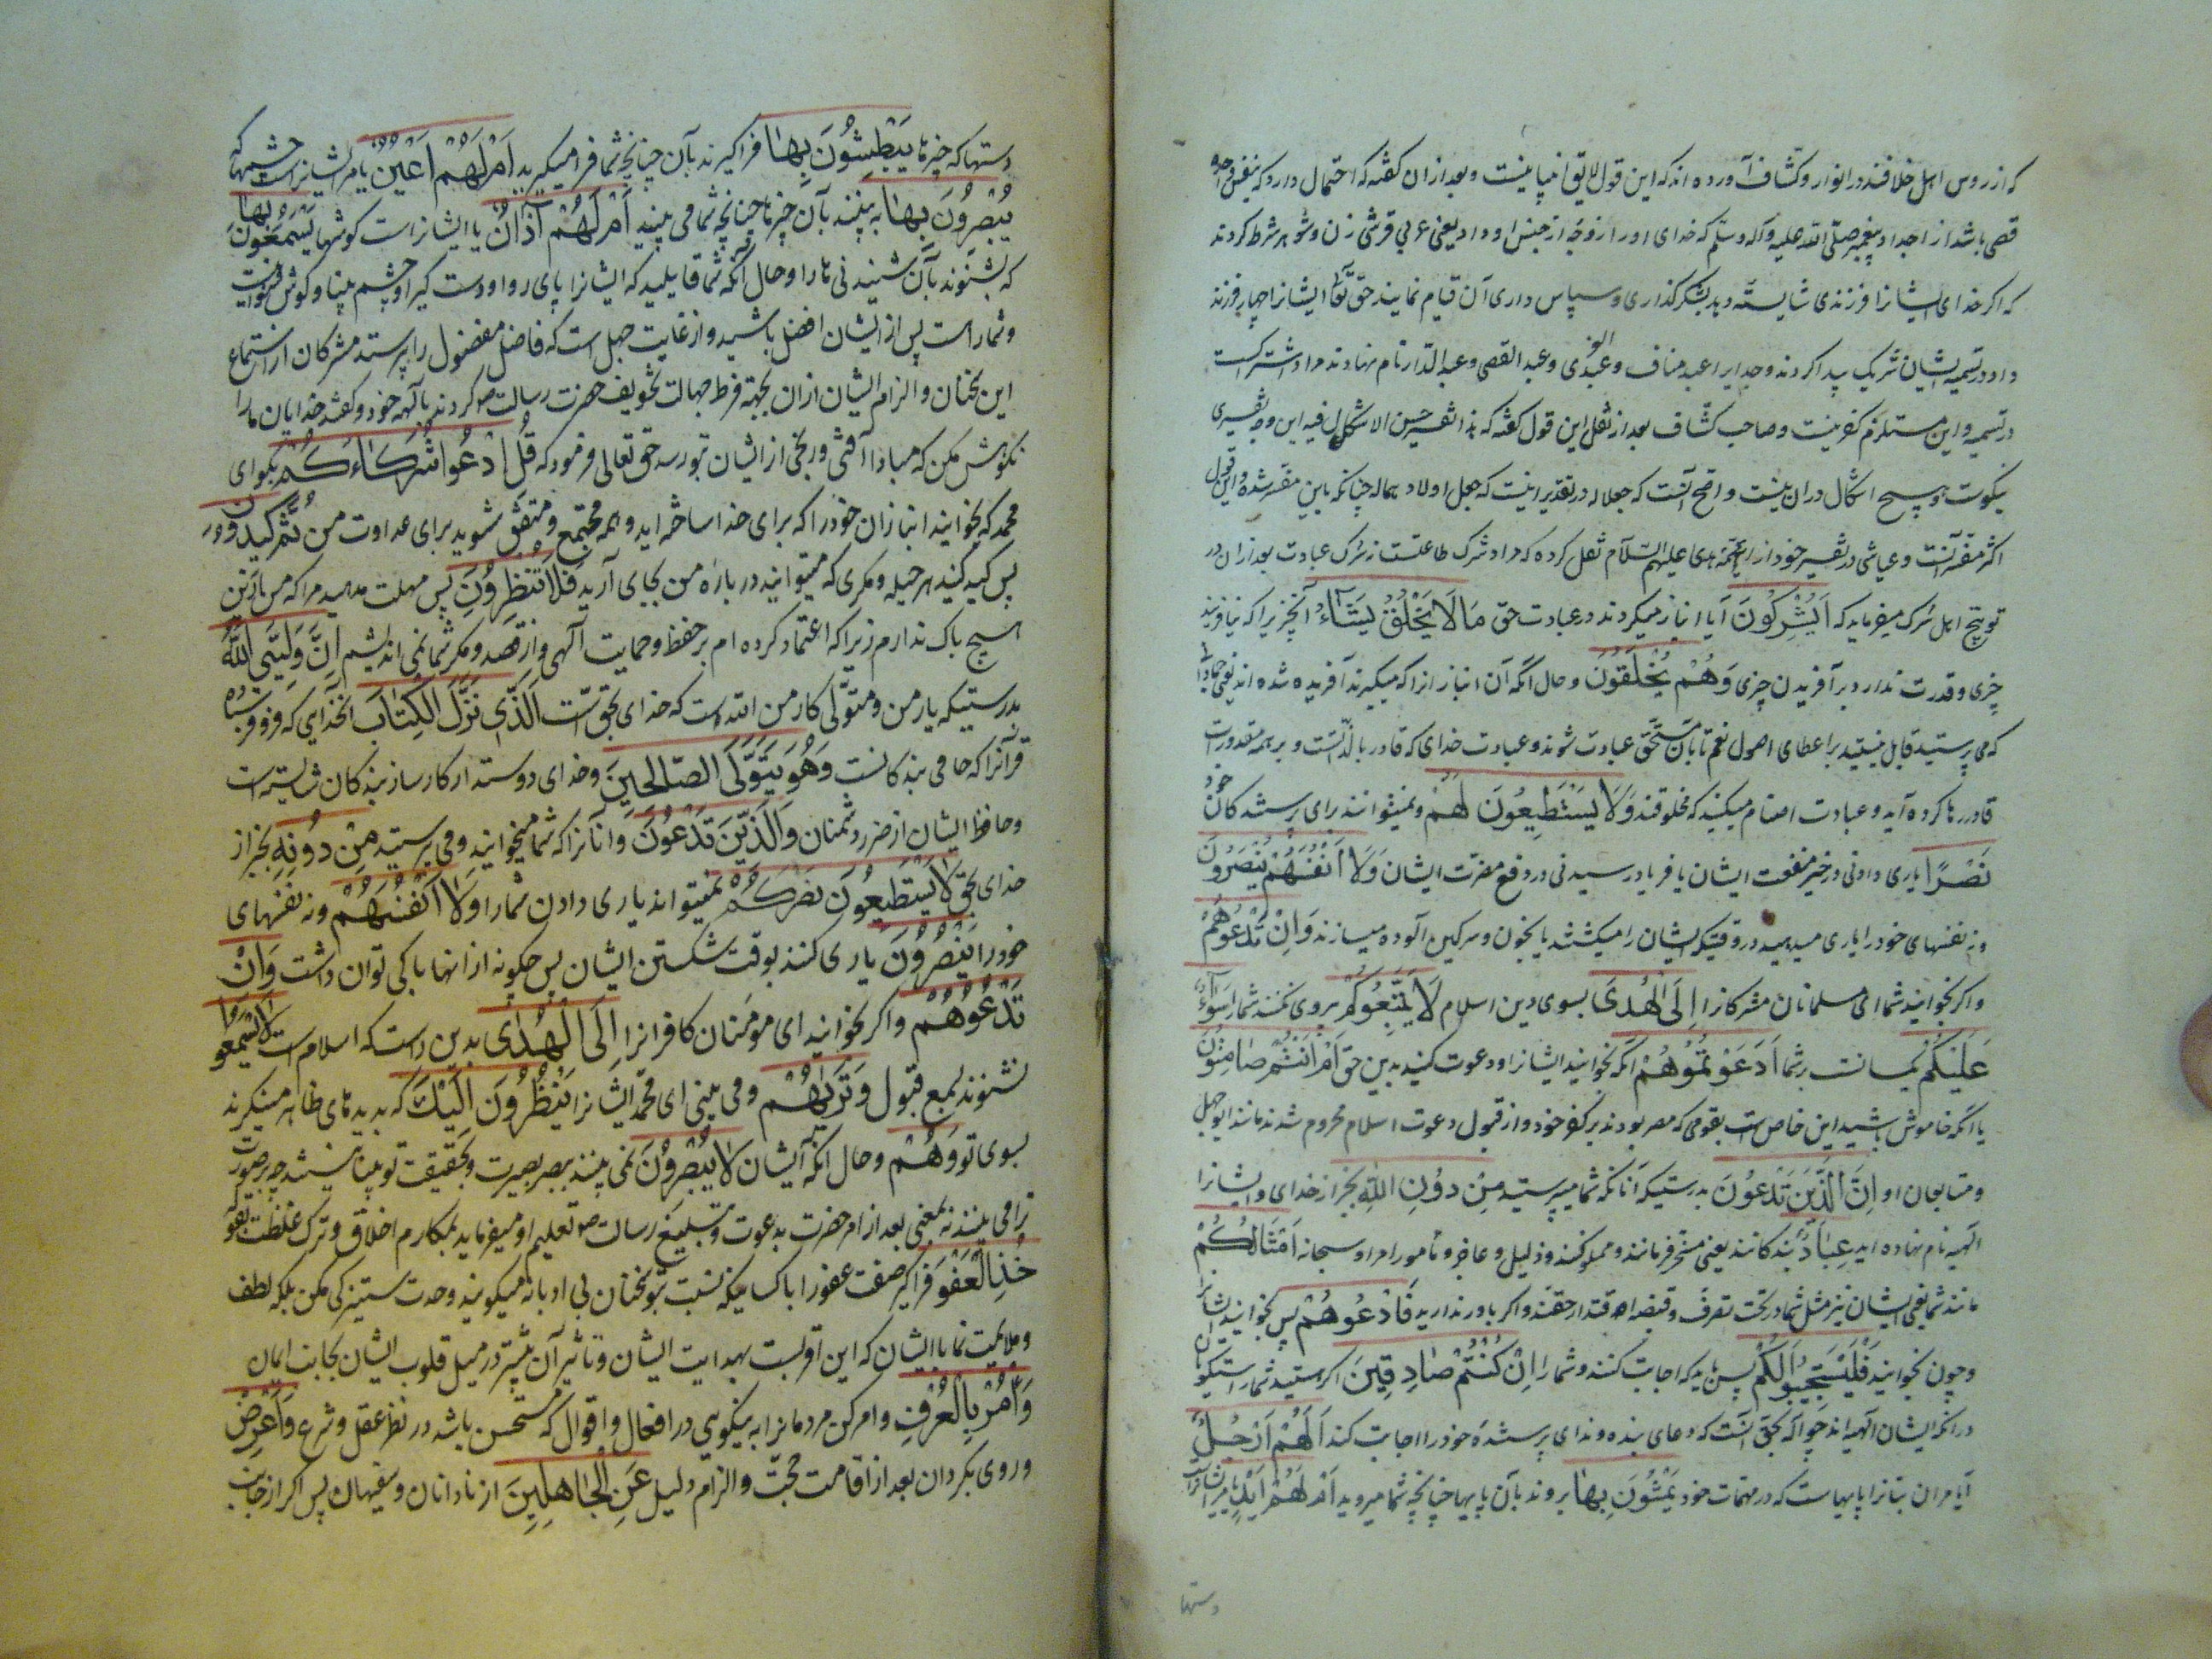 که از روس اهل خلافند در انوار و کشاف آورده اند که این قول لایق انبیا نیست و بعد از ان گفته که احتمال دارد که نفس واحده
قصی باشد از اجداد پیغمبر صلی الله علیه و آله و سلم که خدای او را زوجه از جنس او داد یعنی عربی قرشی زن و شوهر شرط کردند
که اکر خدای ایشانرا فرزندی شایسته دهد بشکر کذاری و سپاس داری آن قیام نمایند حق تعالی ایشانرا چهار فرزند
داد در تسمیه ایشان شریک پیدا کردند و عبد مناف و عبد العزی و عبد القصی و عبد الدار نام نهادند مراد اشتراکست
در تسمیه و این مستلزم کفر نیست و صاحب کشاف بعد از نقل این قول کفته که هذا تفسیر حسن لا اشکال فیه این وجه تفسیری
نیکوست و هیچ اشکال در ان نیست و اضح آنست که جعلا له در تقدیر اینست که جعل اولادهما له چنانکه باین مفسر شده و این قول
اکثر مفسرانست و عیاشی در تفسیر خود از ائمه هدی علیهم السلام نقل کرده که مراد شرک طاعتست نه شرک عبادت بعد از ان در
توبیخ اهل شرک میفرماید که أَیُشْرِکُونَ آیا انباز میکردند در عبادت حق مَا لَا یَخْلُقُ شَیْئًا آنچیز را که نیافریند
چیزی و قدرت ندارد بر آفریدن چیزی وَهُمْ یُخْلَقُونَ و حال آنکه آن انبازانرا که میکیرند آفریده شده اند یعنی جمادا
که می پرستید قابل نیستید بر اعطای اصول نعم تا بآن مستحق عبادت شوند و عبادت خدای که قادر بالذاتست و بر همه مقدورات
قادر رها کرده اید و عبادت اصنام میکنید که مخلوقند وَلَا یَسْتَطِیعُونَ لَهُمْ و نمیتوانند برای پرستند کان خود
نَصْرًا یاری دادنی در خیر منفعت ایشان یا فریاد رسیدنی در دفع مضرت ایشان وَلَا أَنْفُسَهُمْ یَنْصُرُونَ
و نه نفسهای خود را یاری میدهید در وقتیکه ایشان را میکشند یا بخون و سرکین آلوده میسازند وَإِنْ تَدْعُوهُمْ
و اکر بخوانید شما ای مسلمانان مشرکانرا إِلَی الْهُدَی بسوی دین اسلام لَا یَتَّبِعُوکُمْ پیروی نکنند شما را سَوَاءٌ
عَلَیْکُمْ یکسانست بر شما أَدَعَوْتُمُوهُمْ آنکه بخوانید ایشانرا و دعوت کنید بدین حق أَمْ أَنْتُمْ صَامِتُونَ
یا آنکه خاموش باشید این خاص است بقومی که مصر بودند بر کفر خود و از قبول دعوت اسلام محروم شدند مانند ابو جهل
و متابعان او إِنَّ الَّذِینَ تَدْعُونَ بدرستیکه آنانکه شما میپرستید مِنْ دُونِ اللَّهِ بجز از خدای و ایشانرا
آلهه نام نهاده اید عِبَادٌ بندکانند یعنی مسخر فرمانند و مملوکند و ذلیل و عاجز و مامور امر او سبحانه أَمْثَالُکُمْ
مانند شما یعنی ایشان نیز مثل شما در تحت تصرف و قبضه اقتدار حقند و اکر باور ندارید فَادْعُوهُمْ پس بخوانید ایشانرا
و چون بخوانید فَلْیَسْتَجِیبُوا لَکُمْ پس باید که اجابت کنند و شما را إِنْ کُنْتُمْ صَادِقِینَ اکر هستید شما راستکویان
در آنکه ایشان آلهه اند چو آنکه بحق آنست که دعای بنده و ندای پرستنده خود را اجابت کند أَلَهُمْ أَرْجُلٌ
آیا مران بتانرا پایهاست که در مهمات خود یَمْشُونَ بِهَا بروند بآن پایها چنانچه شما میروید أَمْ لَهُمْ أَیْدٍ یا مر ایشانراست
دستها
دستها که چیزها یَبْطِشُونَ بِهَا فرا کیرند بآن چنانچه شما فرا میکیرید أَمْ لَهُمْ أَعْیُنٌ یا مر ایشانراست چشمها که
یُبْصِرُونَ بِهَا به بینند بآن چیزها چنانچه شما می بینید أَمْ لَهُمْ آذَانٌ یا ایشانراست کوشها یَسْمَعُونَ بِهَا
که بشنوند بآن شنیدنی ها را و حال آنکه شما قایلید که ایشانرا پای روا و دست کیرا و چشم بینا و کوش شنوا نیست
و شما راست پس از ایشان افضل باشید و از غایت جهل است که فاضل مفضول را پرستد مشرکان از استماع
این سخنان و الزام ایشان از ان بجهة فرط جهالت تخویف حضرت رسالت صم کردند بآلهه خود و کفتند خدایان ما را
نکوهش مکن که مبادا آفتی و رنجی از ایشان بتو رسد حق تعالی فرمود که قُلِ ادْعُوا شُرَکَاءَکُمْ بکو ای
محمد که بخوانید انبازان خود را که برای خدا ساخته اید و همه مجتمع و متفق شوید برای عداوت من ثُمَّ کِیدُونِ
پس کید کنید هر حیله و مکری که میتوانید در باره من بجای آرید فَلَا تُنْظِرُونِ پس مهلت مدهید مرا که من از این
هیچ باک ندارم زیرا که اعتماد کرده ام بر حفظ و حمایت آلهی و از قصد و مکر شما نمی اندیشم إِنَّ وَلِیِّیَ اللَّهُ
بدرستیکه یار من و متولی کار من الله است که خدای بحق است الَّذِی نَزَّلَ الْکِتَابَ آنخدایی که فرو فرستاد
قرآنرا که حامی بندکانست وَهُوَ یَتَوَلَّی الصَّالِحِینَ و خدای دوستدار کارساز بندکان شایسته است
و حافظ ایشان از ضرر دشمنان وَالَّذِینَ تَدْعُونَ و آنانرا که شما میخوانید و می پرستید مِنْ دُونِهِ بجز از
خدای بحق لَا یَسْتَطِیعُونَ نَصْرَکُمْ نمیتوانند یاری دادن شما را وَلَا أَنْفُسَهُمْ و نه نفسهای
خود را یَنْصُرُونَ یاری کنند بوقت شکستن ایشان پس چکونه از آنها باکی توان داشت وَإِنْ
تَدْعُوهُمْ و اکر بخوانید ای مؤمنان کافرانرا إِلَی الْهُدَی بدین راست که اسلام است لَا یَسْمَعُوا
نشنوند بسمع قبول وَتَرَاهُمْ و می بینی ای محمد ایشانرا یَنْظُرُونَ إِلَیْکَ که بدیدهای ظاهر مینکرند
بسوی تو وَهُمْ و حال آنکه ایشان لَا یُبْصِرُونَ نمی بینند ببصر بصیرت و بحقیقت تو بینا نیستند چه بصورت
ترا می بینند نه بمعنی بعد از امر حضرت بدعوت و تبلیغ رسالت صم تعلیم او میفرماید بمکارم اخلاق و ترک غلظت بقوله
خُذِ الْعَفْوَ فرا کیر صفت عفو را با کسانیکه نسبت بتو سخنان بی ادبانه میکویند و حدت ستیزکی مکن بلکه لطف
و ملایمت نما با ایشان که این اقربست بهدایت ایشان و تاثیر آن بیشتر در میل قلوب ایشان بجانب ایمان
وَأْمُرْ بِالْعُرْفِ و امر کن مردمانرا به نیکویی در افعال و اقوال که مستحسن باشد در نظر عقل و شرع وَأَعْرِضْ
و روی بکردان بعد از اقامت حجت و الزام دلیل عَنِ الْجَاهِلِینَ از نادانان و سفیهان پس اکر از جانب